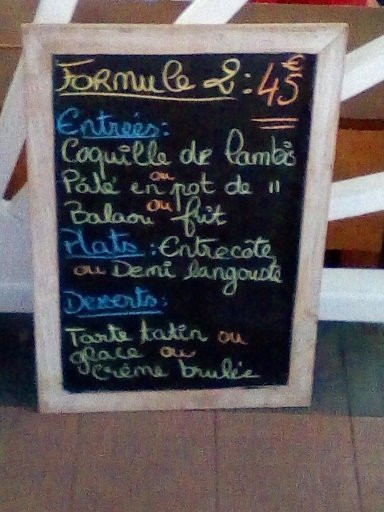 Formule 2: 45€
Entrées:
Coquille de lambis
ou
Pâté en pot de "
ou
Balaou frit
Plats: Entrecôte
ou Demi langouste
Desserts:
Tarte tatin ou
glace ou
Crème brulée